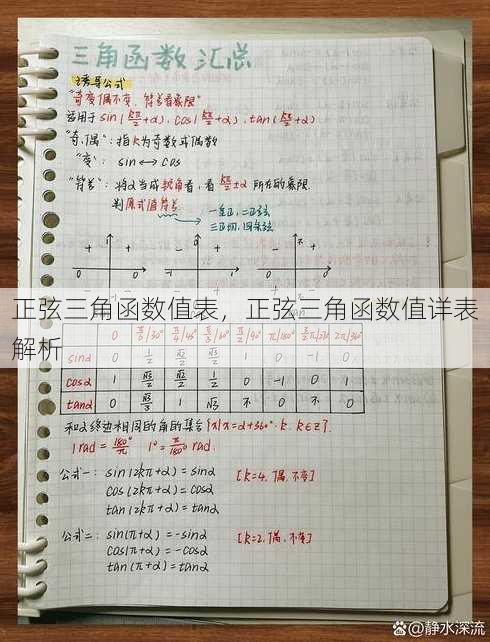 三角函数汇总
诱导公式
"奇变偶不变,符号看象限"
适用于 sin(kπ/2+α), cos(kπ/2+α), tan(kπ/2+α)
"奇、偶": 指k为奇数或偶数
"变": sin↔cos
"符号": 将α当成锐角看,看 kπ/2±α 所在的象限.
判原式值符号
一全正,二正弦
三正切,四余弦
+ + - + - +
- - - + + -
正弦三角函数值表，正弦三角函数值详表
解析
0 π/6|30° π/4|45° π/3|60° π/2|90° π|180° 2π|360°
sinα 0 1/2 √2/2 √3/2 1 0 -1 0
cosα 1 √3/2 √2/2 1/2 0 -1 0 1
tanα 0 √3/3 1 √3 不 0 不 0
和α终边相同的角的集合{x|x=α+360°·k, k∈Z}.
1rad = 180°/π 1°= π/180° rad.
公式一: sin(2kπ+α)=sinα [k=4,偶,不变]
cos(2kπ+α)=cosα
tan(2kπ+α)=tanα
公式二: sin(π+α)=-sinα [k=2,偶,不变]
cos(π+α)=-cosα
tan(π+α)=tanα
@静水深流